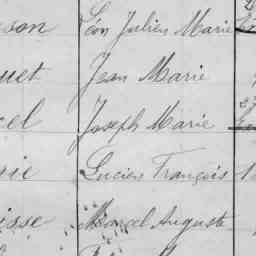 son Léon Julien Marie
uet Jean Marie
el Joseph Marie
ie Lucien François 1
isse Marcel Auguste